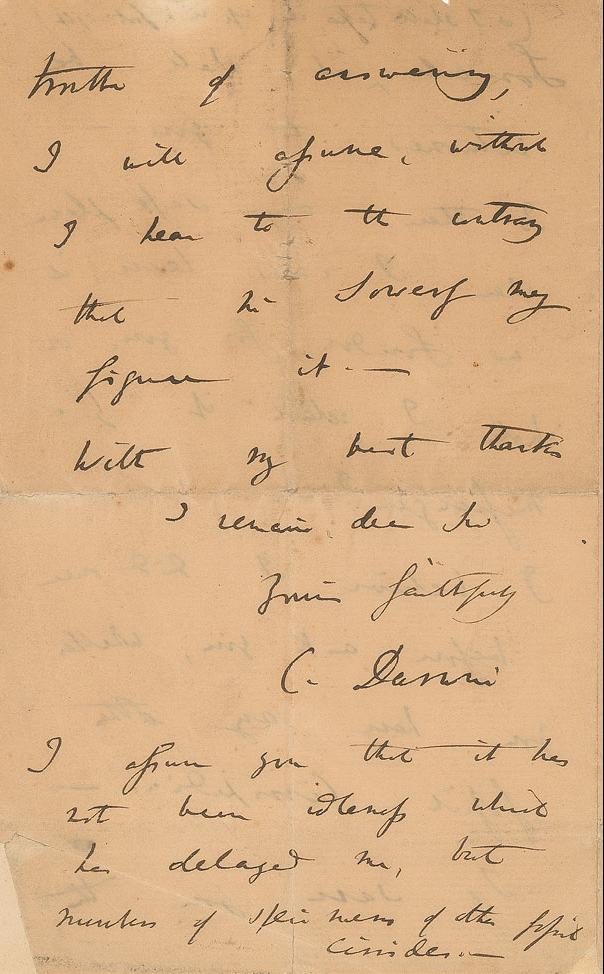 trouble of answering,
I will assume, without
I hear to the contrary
that Mr Sowerby may
figure it.—
With my best thanks
I remain, dear Sir
Yours faithfully
C. Darwin
I assure you that it has
not been idleness which
has delayed me, but
numbers of specimens of other fossil
Cirripedes.—